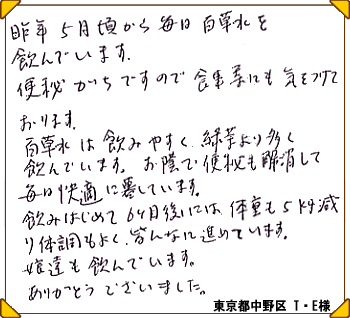 昨年5月頃から毎日百草水を
飲んでいます。
便秘がちですので食事にも気をつけて
おります。
百草水は飲みやすく、緑茶より多く
飲んでいます。お陰で便秘も解消して
毎日快適に暮しています。
飲みはじめて6ヶ月後には、体重も5kg減
り体調もよく、皆んなに進めています。
娘達も飲んでいます。
ありがとうございました。
東京都中野区 T・E様